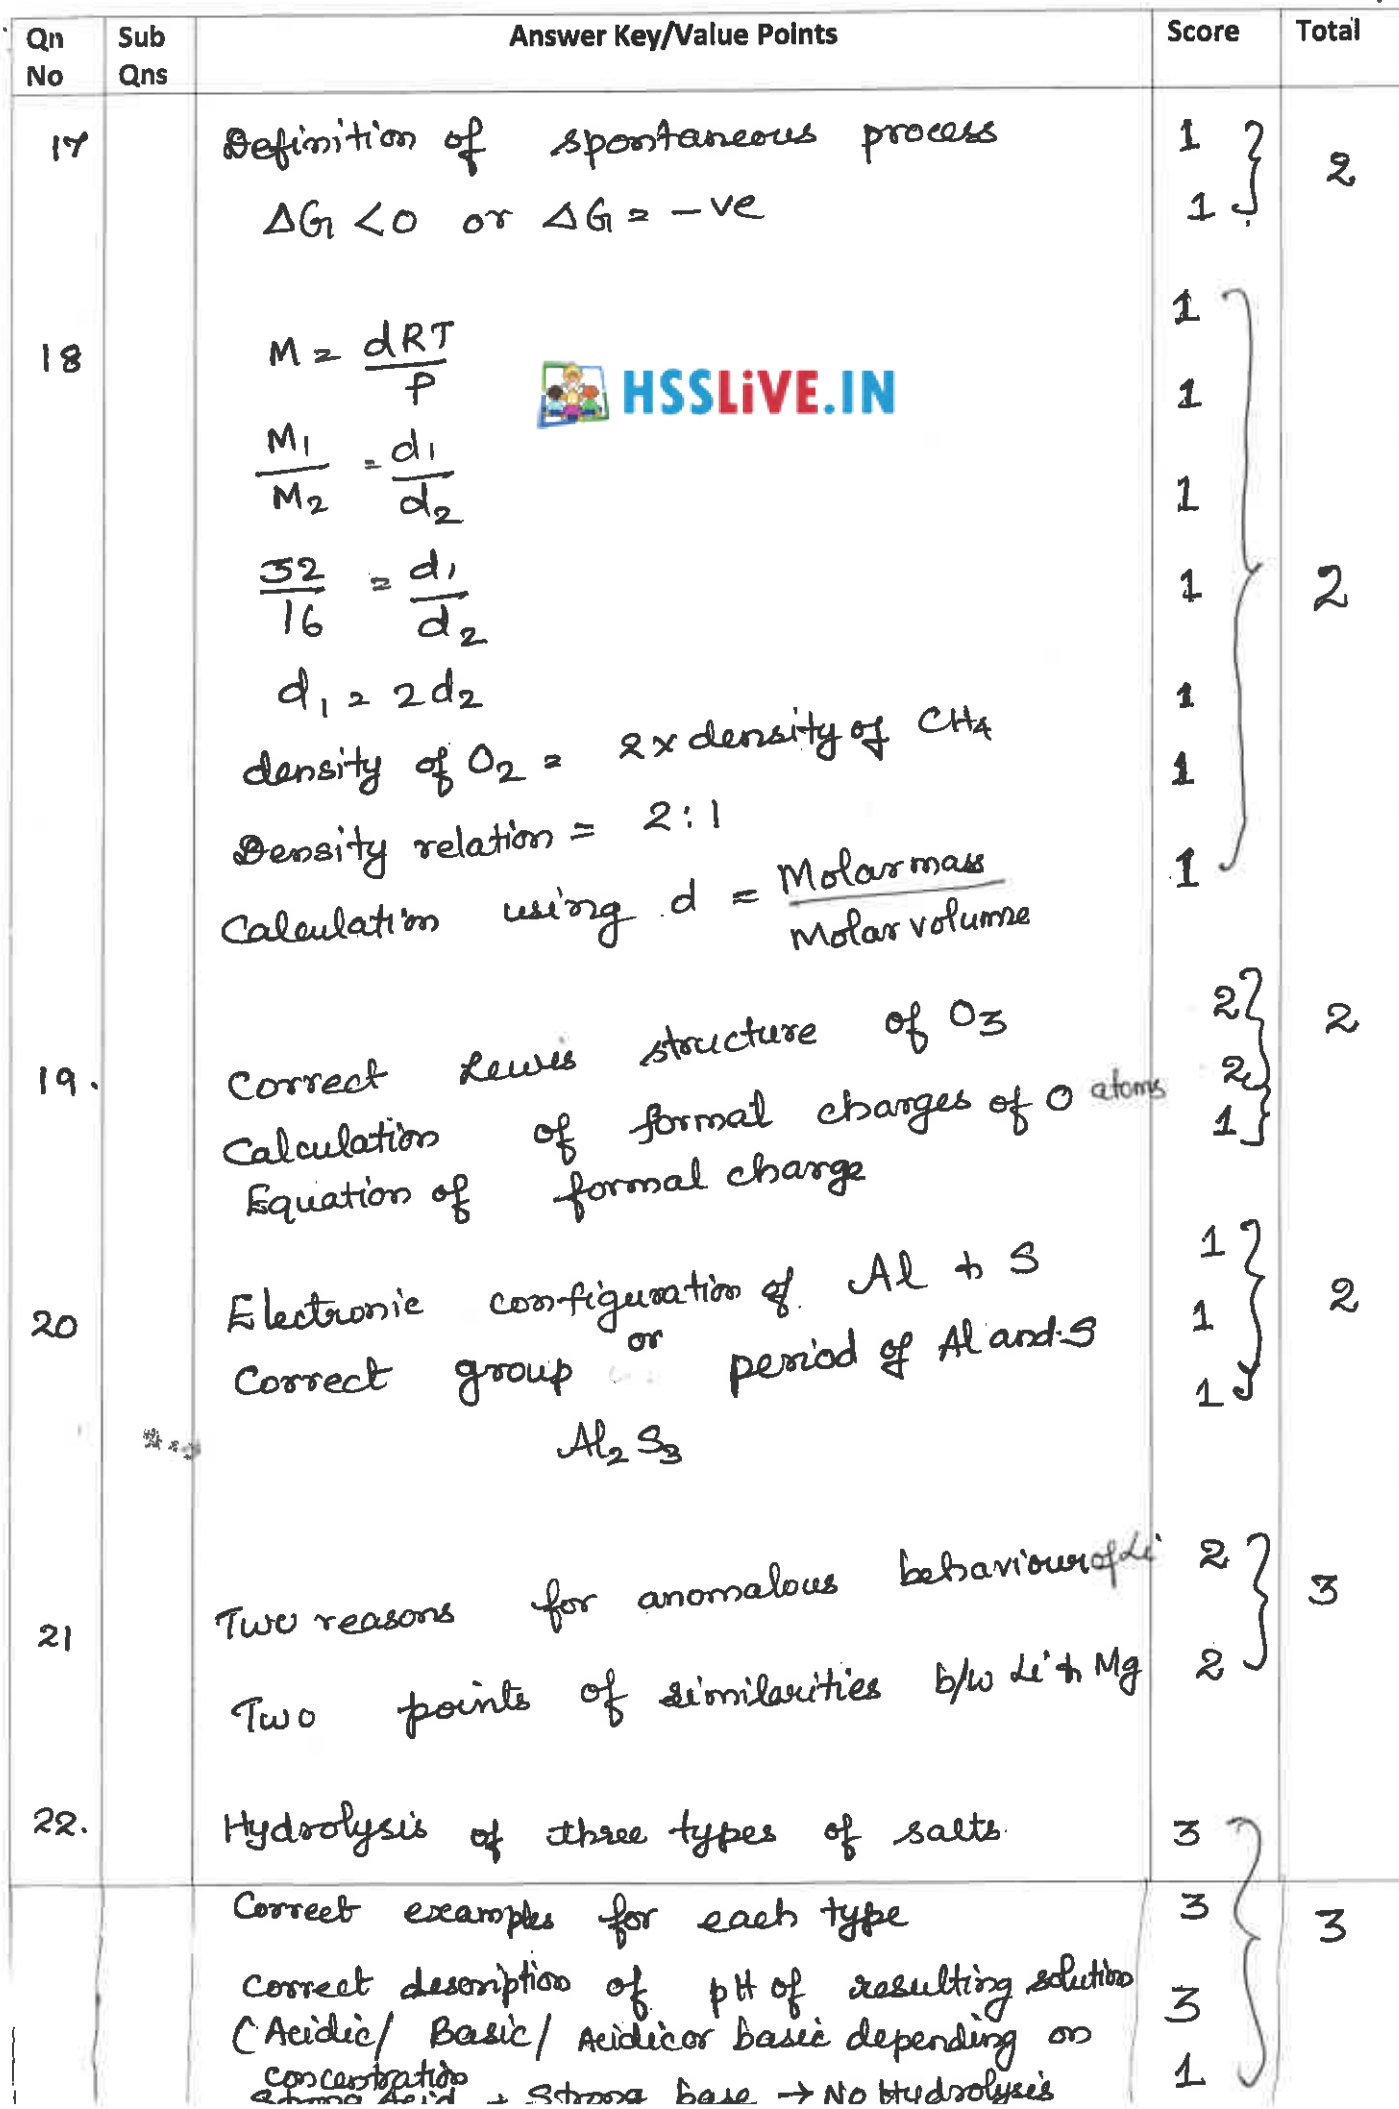 Qn No Sub Qns Answer Key/Value Points Score Total
17 Definition of spontaneous process 1
2
ΔG <0 or ΔG = -ve 1
1
18 M = dRT/P
HSSLiVE.IN
1
M1/M2 = d1/d2
1
32/16 = d1/d2 1
2
d1 = 2d2 1
density of O2 = 2 x density of CH4 1
Density relation = 2:1
Calculation using d = Molar mass/Molar volume 1
19. Correct Lewis structure of O3 2
2
Calculation of formal charges of O atoms 2
Equation of formal charge 1
20 Electronic configuration of Al & S 1
or
2
Correct group period of Al and S 1
Al2 S3 1
21 Two reasons for anomalous behaviour of Li 2
3
Two points of similarities b/w Li & Mg 2
22. Hydrolysis of three types of salts. 3
Correct examples for each type 3
3
Correct description of pH of resulting solution 3
(Acidic/ Basic/ Acidic or basic depending on
concentration 1
Strong Acid + Strong base → No Hydrolysis